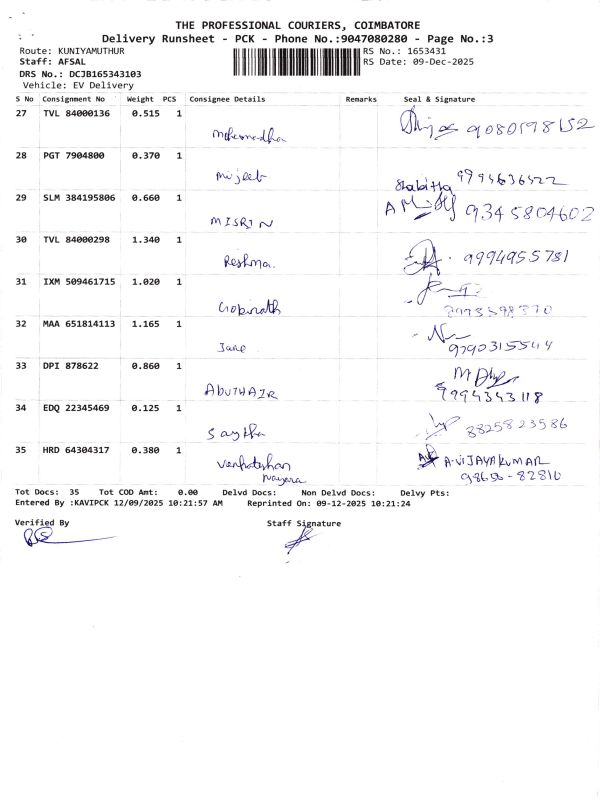 THE PROFESSIONAL COURIERS, COIMBATORE
Delivery Runsheet - PCK - Phone No.:9047080280 - Page No.:3
Route: KUNIYAMUTHUR
RS No.: 1653431
Staff: AFSAL
RS Date: 09-Dec-2025
DRS No.: DCJB165343103
Vehicle: EV Delivery
S No Consignment No Weight PCS Consignee Details Remarks Seal & Signature
27 TVL 84000136 0.515 1
9080198152
28 PGT 7904800 0.370 1
Mujeeb
29 SLM 384195806 0.660 1
Shabitha
MISRIN 9345804602
30 TVL 84000298 1.340 1
Reshma. 9994955781
31 IXM 509461715 1.020 1
Gopinath
32 MAA 651814113 1.165 1
Jane 9790315544
33 DPI 878622 0.860 1
ABUTHAIR 9994343118
34 EDQ 22345469 0.125 1
8825823586
35 HRD 64304317 0.380 1
A.VIJAYAKUMAR
98656-82810
Tot Docs: 35 Tot COD Amt: 0.00 Delvd Docs: Non Delvd Docs: Delvy Pts:
Entered By :KAVIPCK 12/09/2025 10:21:57 AM Reprinted On: 09-12-2025 10:21:24
Verified By Staff Signature